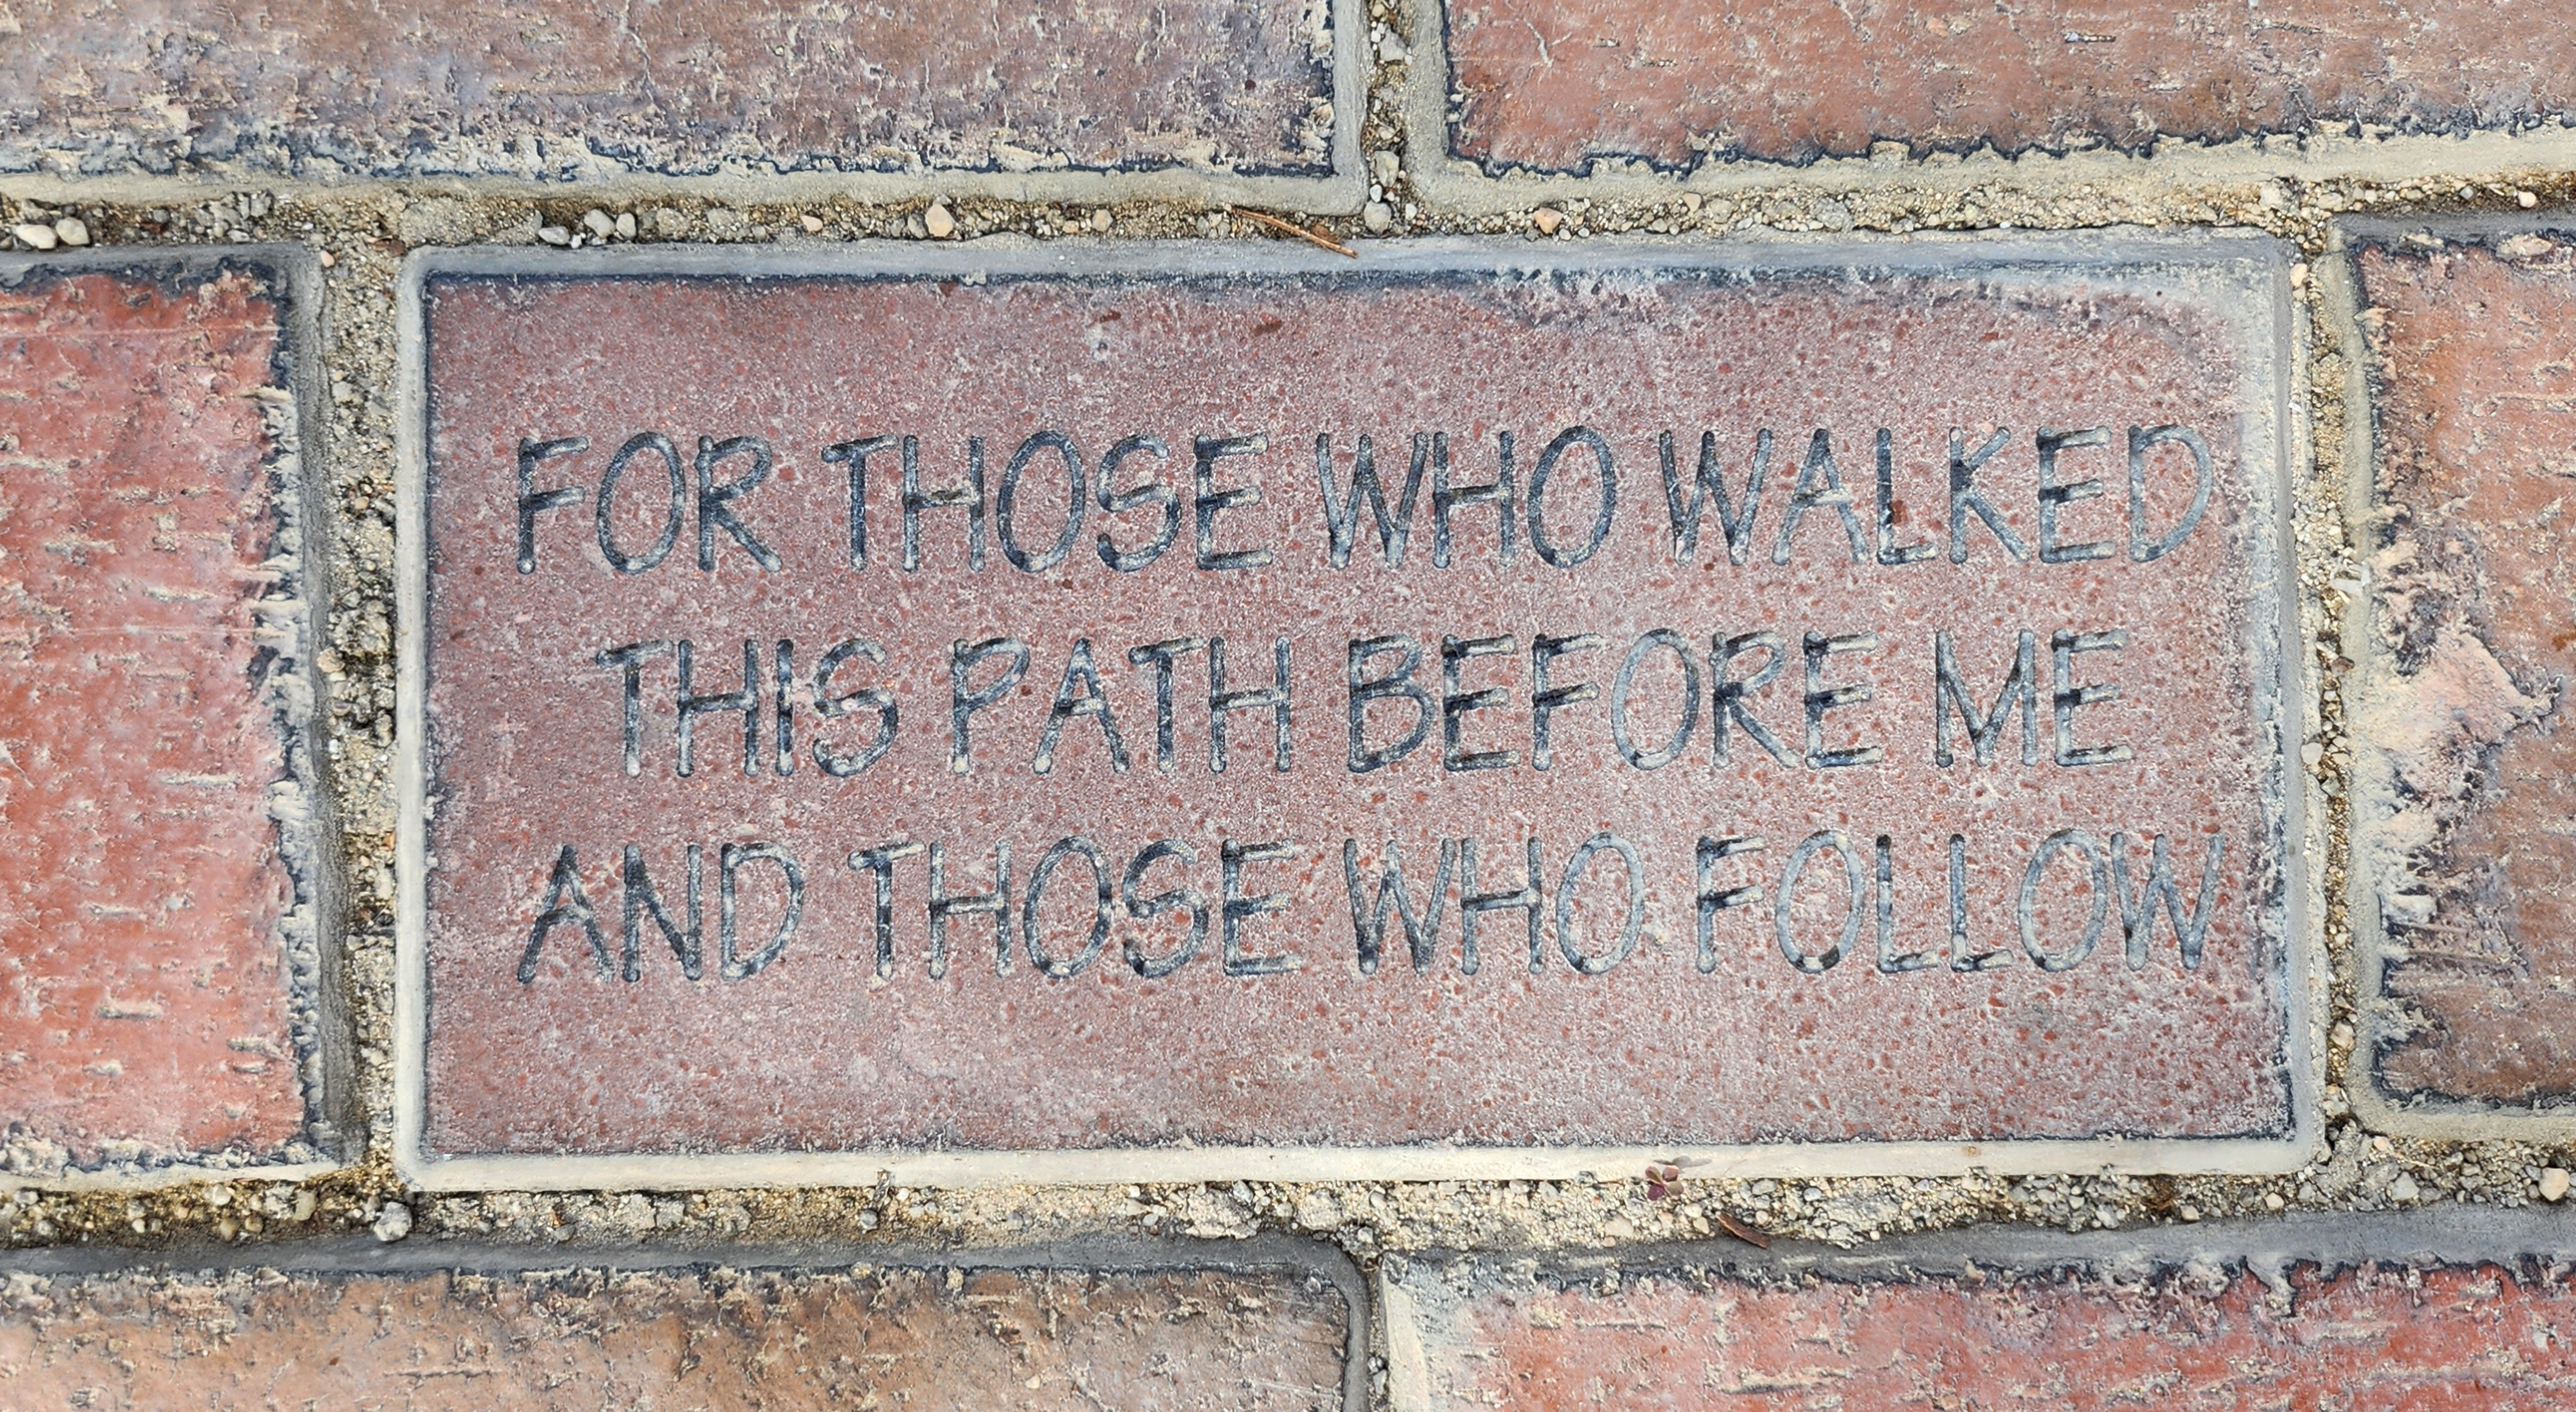 FOR THOSE WHO WALKED
THIS PATH BEFORE ME
AND THOSE WHO FOLLOW